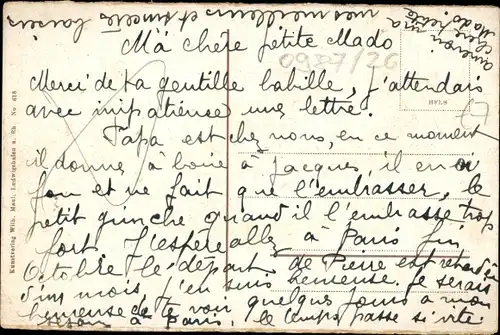 Ma chère petite Mado
0987/26
Merci de ta gentille babille, j'attendais
avec impatience une lettre.
Papa est chez nous, en ce moment
il donne à boire à Jacques, il en est
fou et ne fait que l'embrasser, le
petit grinche quand il l'embrasse trop
fort. J'espère aller à Paris fin
Octobre le départ de Pierre est retardé
d'un mois, j'en suis heureuse. Je serais
heureuse de te voir quelques jours à mon
à Paris, le temps passe si vite.
au revoir ma
chère petite
Mado.
mes meilleurs et sincères baisers
Kunstverlag Wilh. Maul, Ludwigshafen a. Rh. No 618